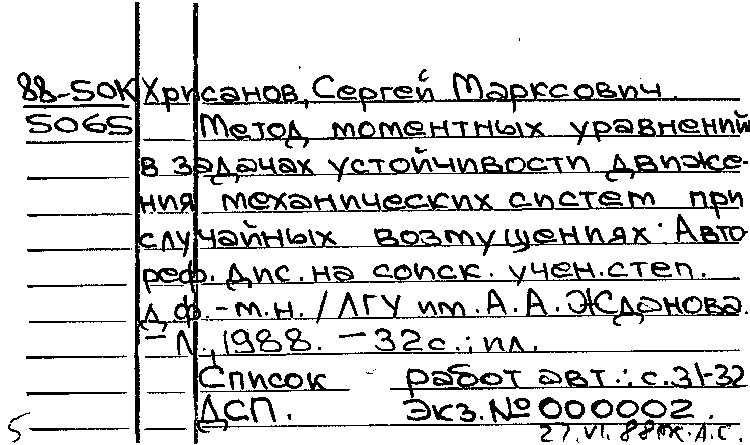 88-50К Хрисанов, Сергей Марксович.
5065 Метод моментных уравнений
в задачах устойчивости движе-
ния механических систем при
случайных возмущениях: Авто-
реф. дис. на соиск. учен. степ.
д.ф.-м.н. / ЛГУ им. А. А. Жданова.
- Л., 1988. - 32 с.; ил.
Список работ авт.: с. 31-32
ДСП. Экз. № 000002.
5 27.VI.88